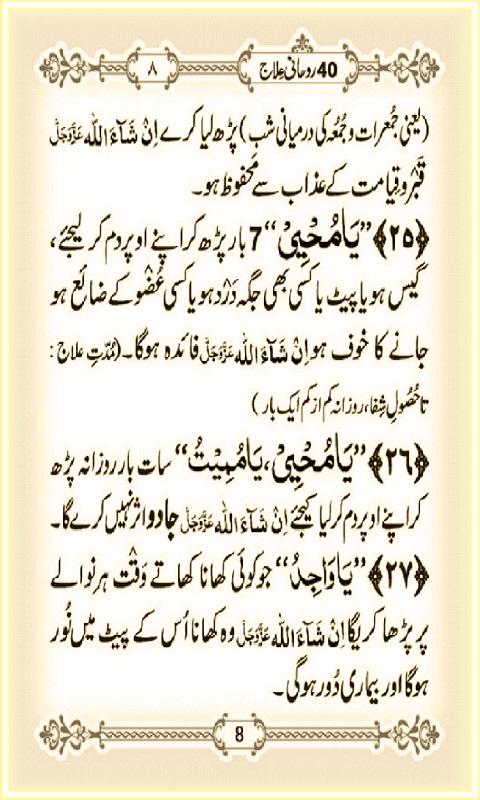 40 روحانی علاج ۸
(یعنی جُمعرات و جُمُعہ کی درمیانی شب) پڑھ لیا کرے اِنْ شَآءَ اللہ عَزَّوَجَلَّ
قَبْر و قِیامت کے عذاب سے مَحفوظ ہو۔
﴿۲۵﴾ ”یَا مُحْیِیْ“ 7 بار پڑھ کر اپنے اوپر دم کر لیجئے،
گیس ہو یا پیٹ یا کسی بھی جگہ دَرْد ہو یا کسی عُضْو کے ضائع ہو
جانے کا خوف ہو اِنْ شَآءَ اللہ عَزَّوَجَلَّ فائدہ ہوگا۔ (مُدّتِ علاج:
تاحُصُولِ شِفا، روزانہ کم از کم ایک بار)
﴿۲۶﴾ ”یَا مُحْیِیْ، یَا مُمِیْتُ“ سات بار روزانہ پڑھ
کر اپنے اوپر دم کر لیا کیجئے اِنْ شَآءَ اللہ عَزَّوَجَلَّ جادو اثر نہیں کرے گا۔
﴿۲۷﴾ ”یَا وَاجِدُ“ جو کوئی کھانا کھاتے وَقْت ہر نوالے
پر پڑھا کریگا اِنْ شَآءَ اللہ عَزَّوَجَلَّ وہ کھانا اُس کے پیٹ میں نُور
ہوگا اور بیماری دُور ہوگی۔
8